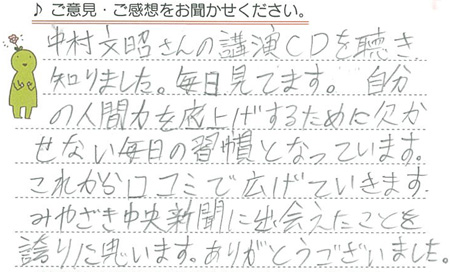 ♪ ご意見・ご感想をお聞かせください。
中村文昭さんの講演CDを聴き
知りました。毎日見てます。自分
の人間力を底上げするために欠か
せない毎日の習慣となっています。
これから口コミで広げていきます。
みやざき中央新聞に出会えたことを
誇りに思います。ありがとうございました。